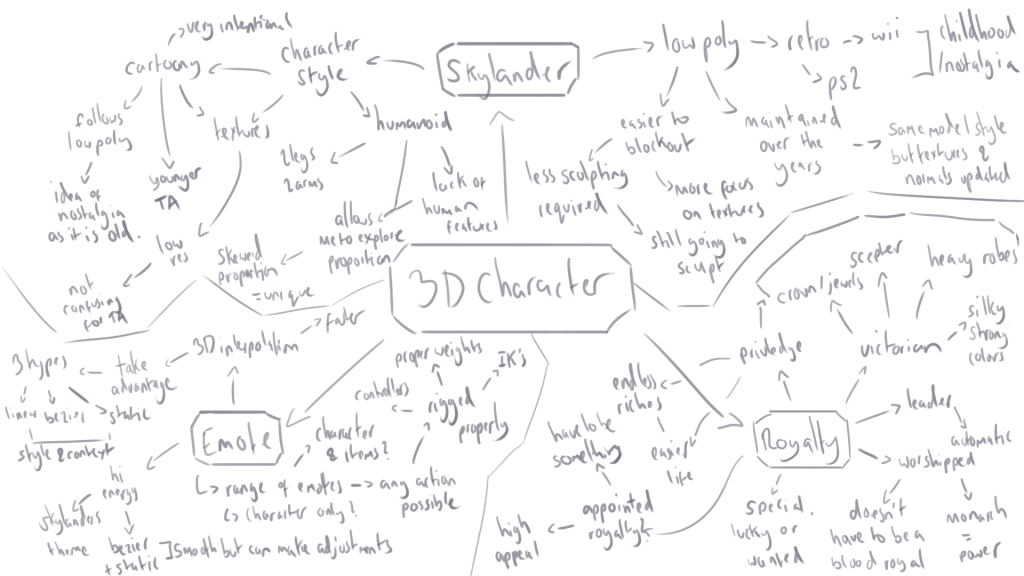 very intentional
cartoony
character
style
Skylander
low poly
retro
wii
childhood
/nostalgia
ps2
follows
low poly
textures
humanoid
easier to
blockout
maintained
over the
years
same model style
but textures &
normals updated
idea of
nostalgia
as it is old.
younger
TA
2 legs
2 arms
lack of
human
features
less sculpting
required
more focus
on textures
still going to
sculpt
low
res
not
confusing
for TA
allows
me to explore
proportion
skewed
proportion
= unique
3D Character
crown/jewels
scepter
heavy robes
silky
strong
colors
priviledge
victorian
endless
riches
easier
life
have to be
something
appointed
royalty?
high
appeal
Royalty
leader
automatic
worshipped
monarch
=
power
doesn't
have to be a
blood royal
special.
lucky or
wanted
faster
3D interpolation
take
advantage
3 types
linear
bezier
static
style & context
Emote
hi
energy
skylanders
theme
bezier
+ static
smooth but can make adjustments
range of emotes
character only?
character
& items?
any action
possible
rigged
properly
controllers
proper weights
IK's